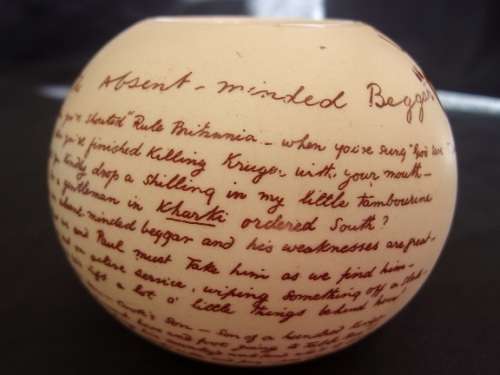 Absent-minded Beggar
you've shouted "Rule Britannia - when you've sung "God save
you've finished Killing Kruger with your mouth -
kindly drop a shilling in my little tambourine
a gentleman in Kharki ordered South?
absent minded beggar and his weaknesses are great -
and Paul must Take him as we find him -
on active service, wiping something off a slate -
left a lot o' little Things behind him
Cook's Son - Son of a hundred